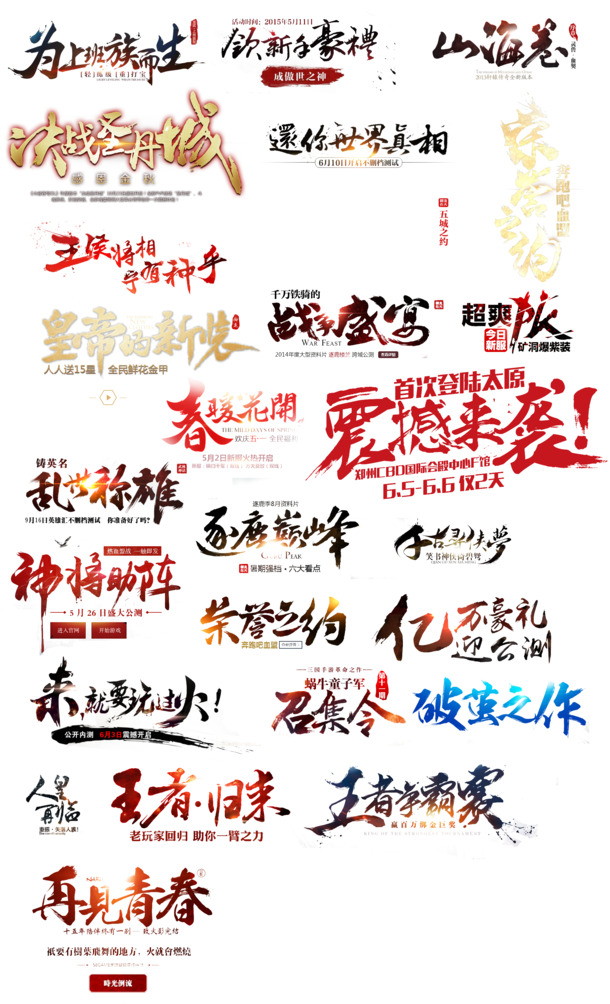 为上班族而生
[轻]练级 [重]打宝
活动时间：2015年5月11日
领新手豪禮
成傲世之神
山海卷
决战圣丹城
感恩金秋
還你世界真相
6月10日开启不删档测试
荣誉之约
奔跑吧血盟
五城之约
王侯将相
宁有种乎
皇帝的新装
人人送15星 全民鲜花金甲
千万铁骑的
战争盛宴
WAR FEAST
2014年度大型资料片 逐鹿榜首 跨域公测
超爽
今日
新服
矿洞爆紫装
春暖花開
欢庆五一 全民福利
5月2日新服火热开启
首次登陆太原
震撼来袭！
郑州CBD国际会展中心F馆
6.5-6.6 仅2天
铸英名
乱世称雄
9月16日英雄汇不删档测试 你准备好了吗？
逐鹿季8月资料片
逐鹿巅峰
暑期强档·六大看点
千古寻侠夢
笑书神侠倚碧鸳
热血盟战 一触即发
神将助阵
5 月 26 日盛大公测
进入官网
开始游戏
荣誉之约
奔跑吧血盟
亿万豪礼
迎公测
来,就要玩过火!
公开内测 6月3日震撼开启
三国手游革命之作
蜗牛童子军
第十一期
召集令
破茧之作
人皇
再临
王者·归来
老玩家回归 助你一臂之力
王者争霸赛
赢百万黄金巨奖
再见青春
十五年陪伴终有一别 致火影完结
祇要有樹葉飛舞的地方，火就會燃燒
時光倒流